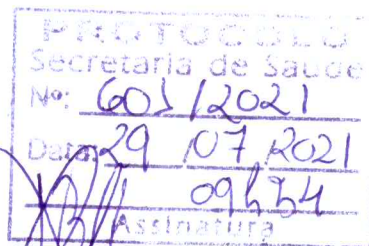 PROTOCOLO
Secretaria de Saúde
Nº: 603/2021
Data: 29/07/2021
09h34
Assinatura